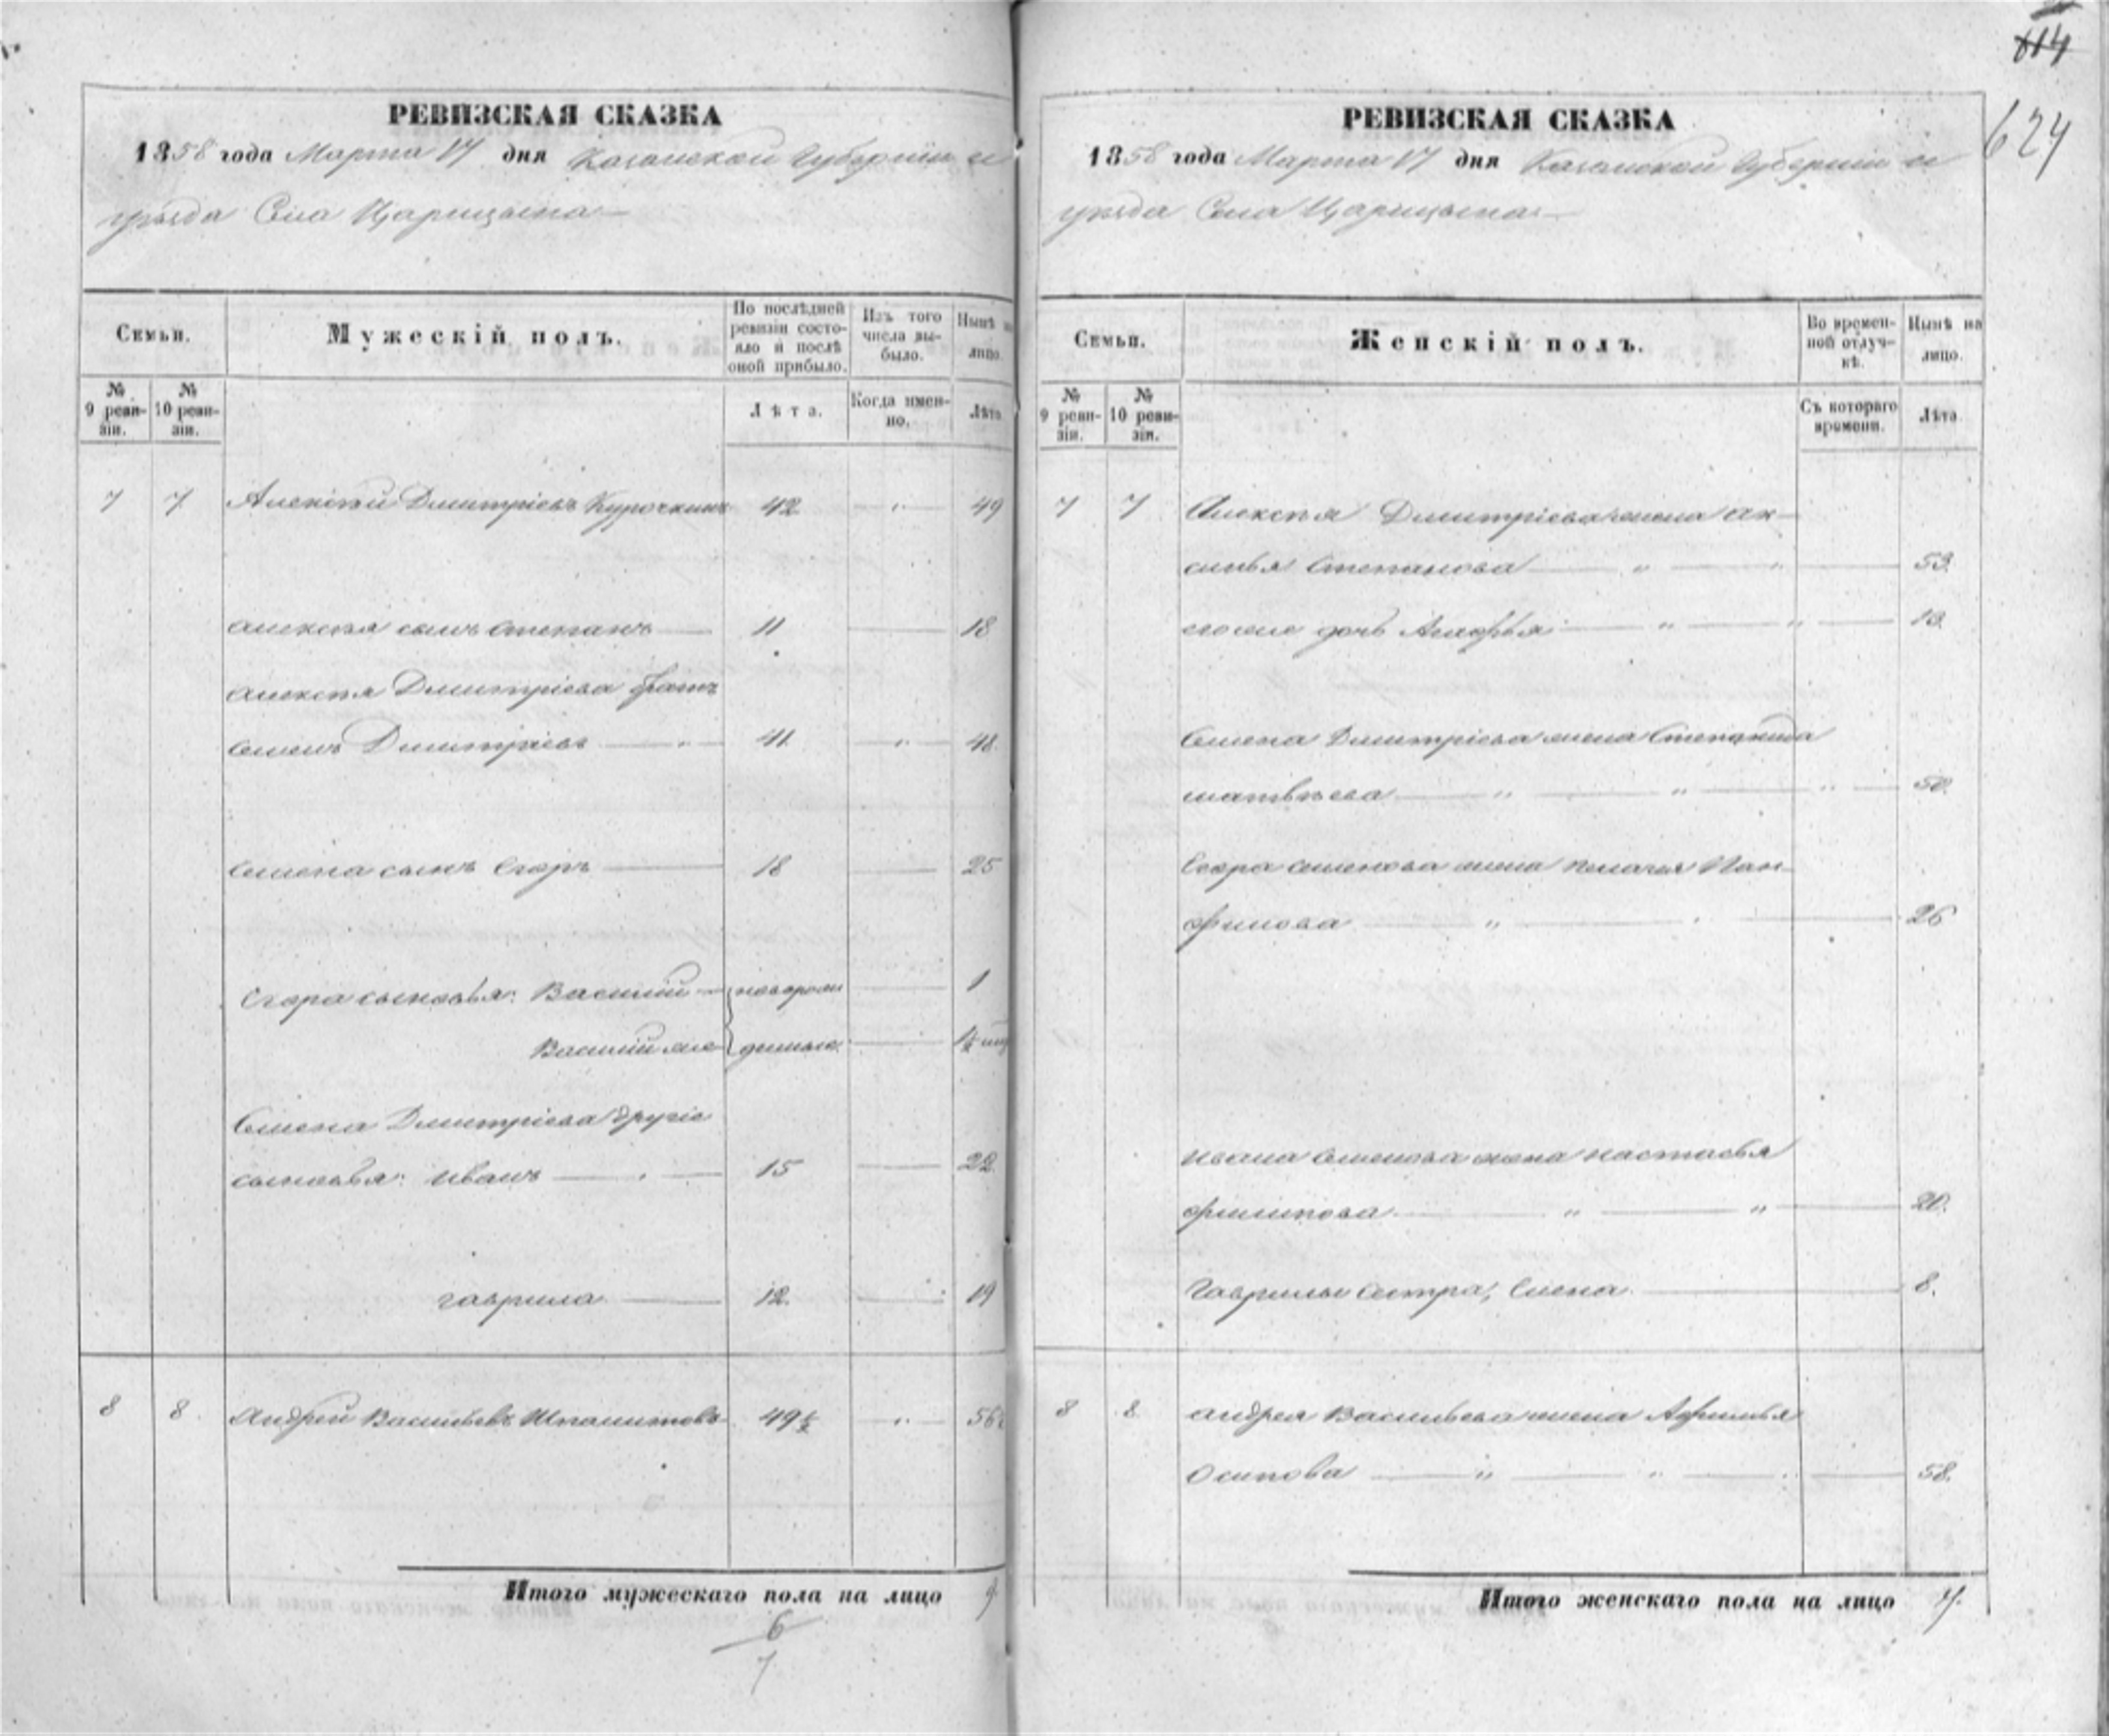 614
624
РЕВИЗСКАЯ СКАЗКА
1858 года Марта 17 дня Казанской Губерніи и
уѣзда Села Царицына
Семьи.
Мужескій полъ.
По послѣдней ревизіи состояло и послѣ оной прибыло.
Изъ того числа выбыло.
Нынѣ на лицо.
№ 9 ревизіи.
№ 10 ревизіи.
Лѣта.
Когда именно.
Лѣта
7 7 Алексѣй Дмитріевъ Курочкинъ 42 49
Алексѣя сынъ Степанъ 11 18
Алексѣя Дмитріева братъ
Семенъ Дмитріевъ 41 48
Семена сынъ Егоръ 18 25
Егора сыновья: Василій новорож 1
Василій же денные ½
Семена Дмитріева другіе
сыновья: Иванъ 15 22
Гаврила 12 19
8 8 Андрей Васильевъ 49½ 56
Итого мужескаго пола на лицо 9
6
7
РЕВИЗСКАЯ СКАЗКА
1858 года Марта 17 дня Казанской Губерніи и
уѣзда Села Царицына
Семьи.
Женскій полъ.
Во временной отлучкѣ.
Нынѣ на лицо.
№ 9 ревизіи.
№ 10 ревизіи.
Съ котораго времени.
Лѣта
7 7 Алексѣя Дмитріева жена Ак-
синья Степанова 53
его же дочь Агафья 13
Семена Дмитріева жена Степанида
Матвѣева 50
Егора Семенова жена Пелагея Пан-
филова 26
Ивана Семенова жена Настасья
Филипова 20
Гаврилы сестра, Елена 8.
8 8 Андрея Васильева жена Афимья
Осипова 58.
Итого женскаго пола на лицо 7.